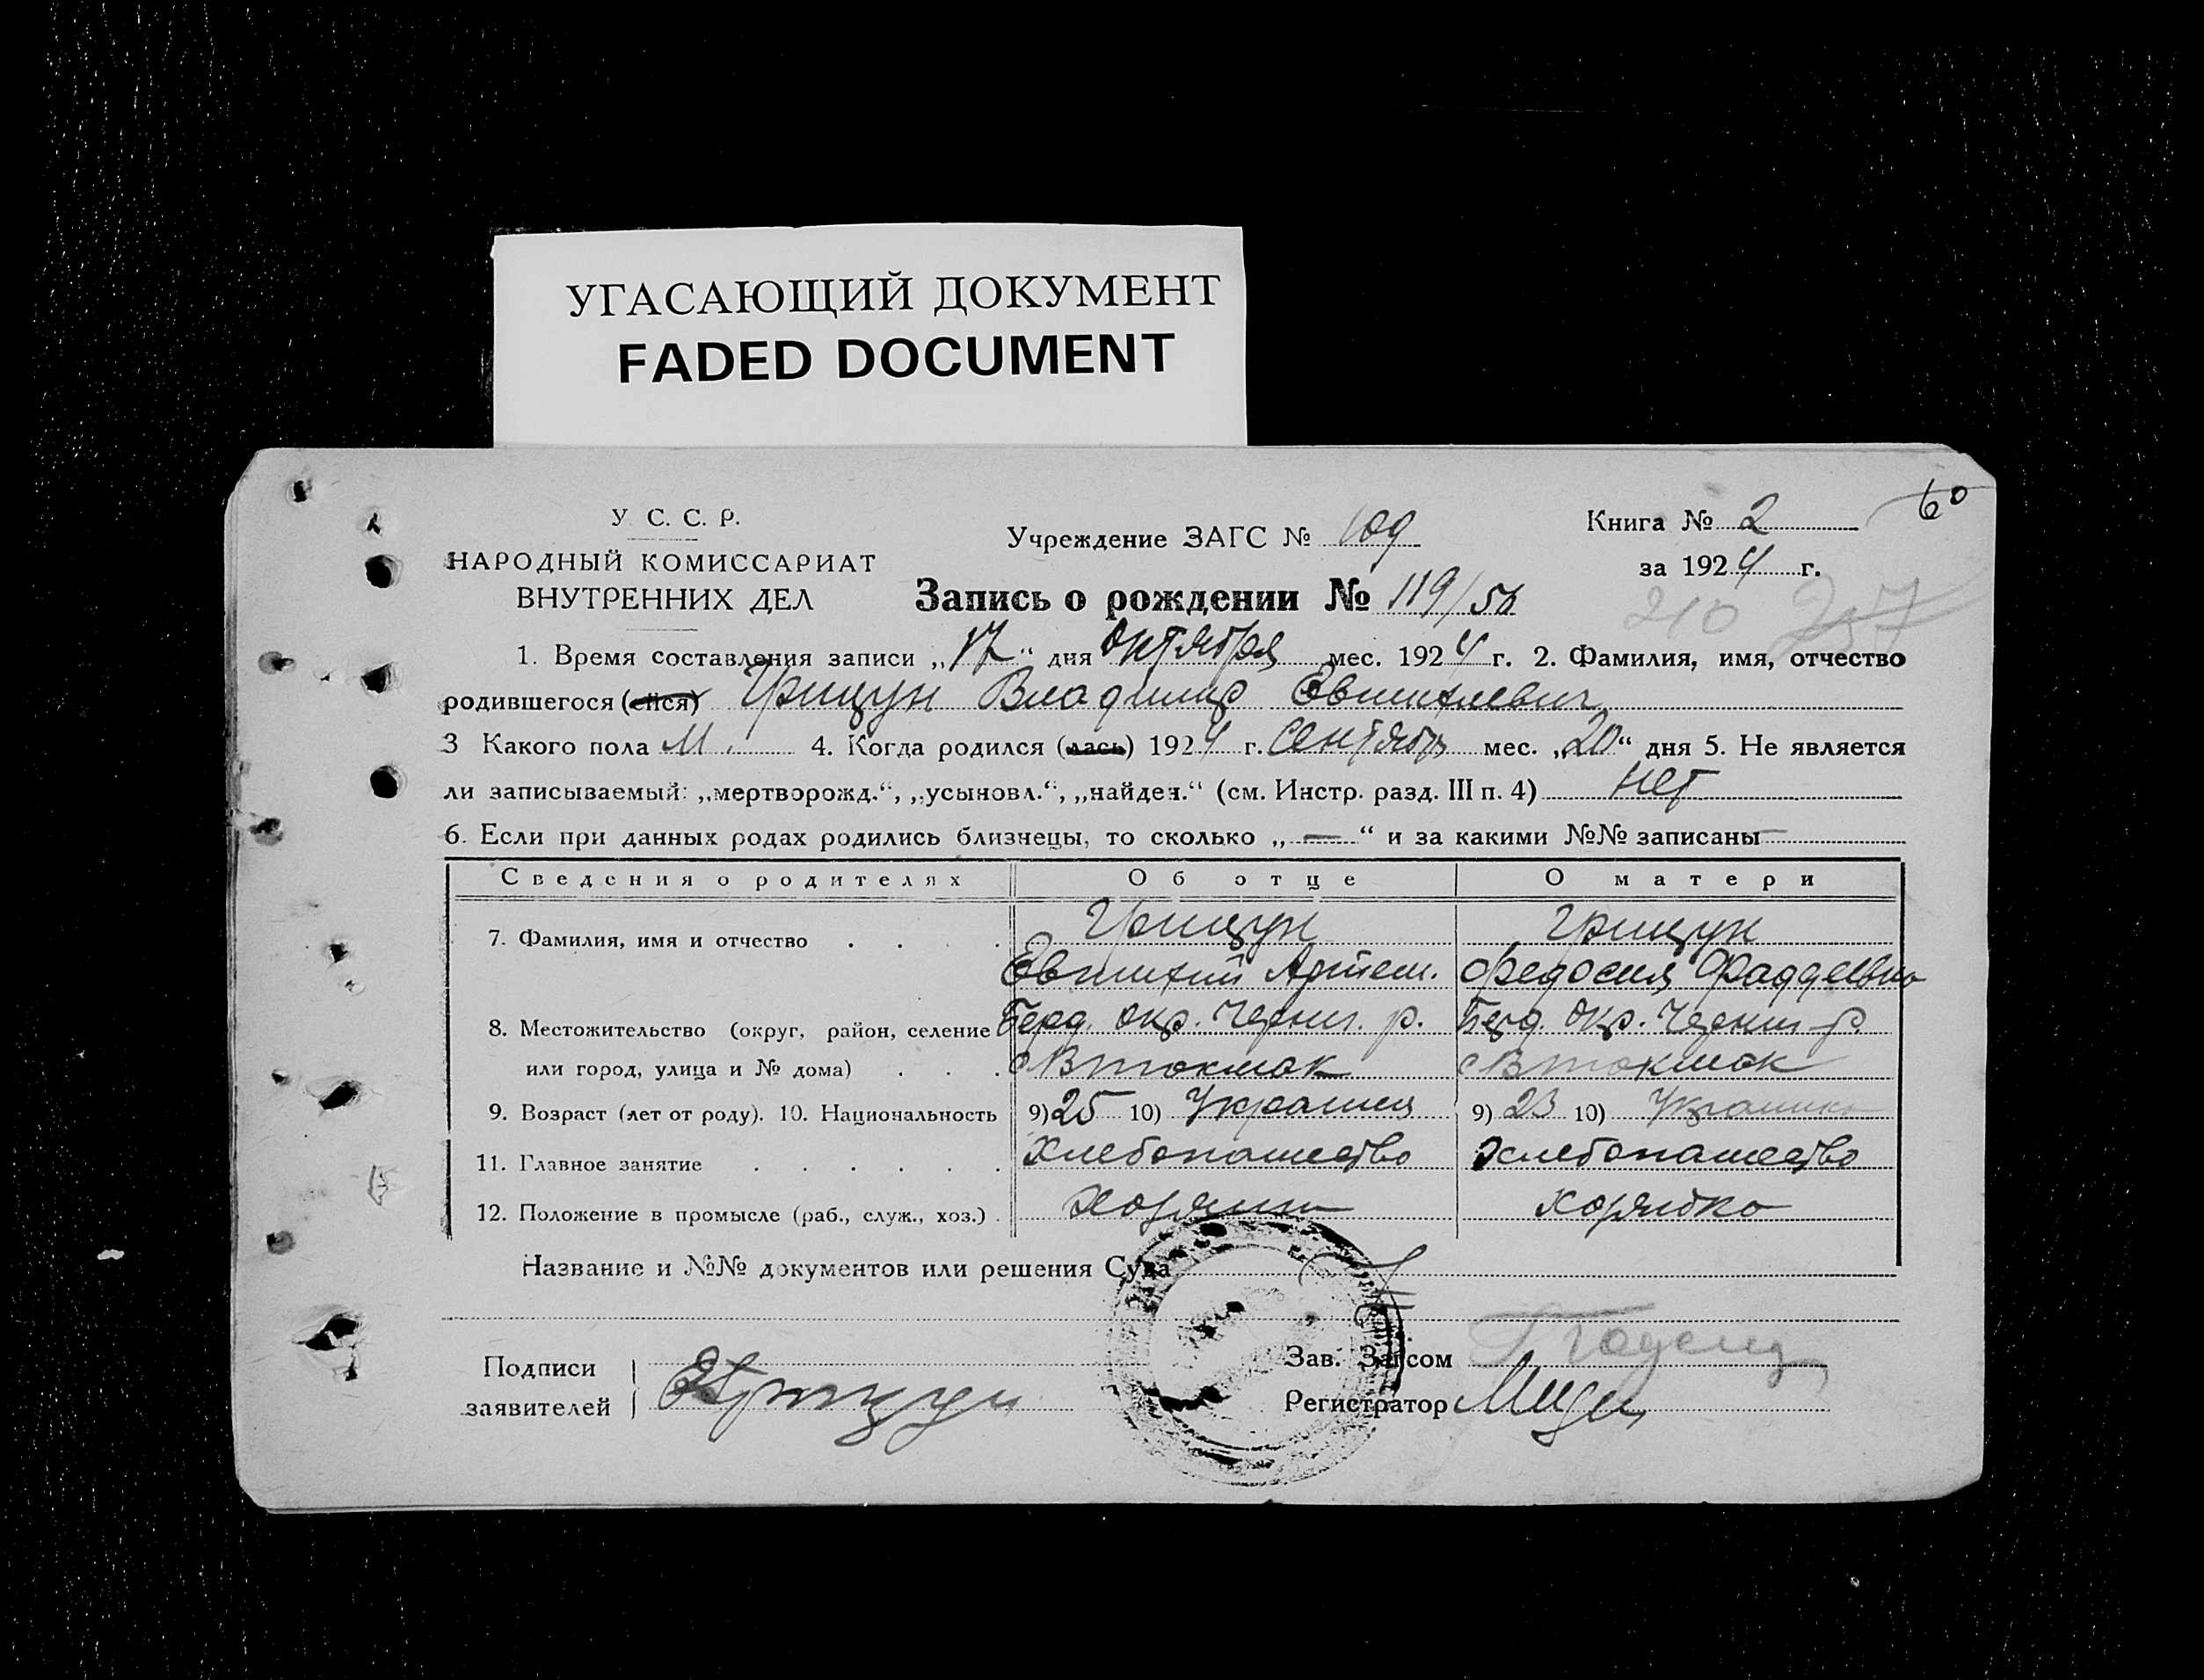 УГАСАЮЩИЙ ДОКУМЕНТ
FADED DOCUMENT
60
У. С. С. Р.
НАРОДНЫЙ КОМИССАРИАТ
ВНУТРЕННИХ ДЕЛ
Учреждение ЗАГС № 109
Книга № 2
за 1924 г.
Запись о рождении № 119/56
210 257
1. Время составления записи „17“ дня октября мес. 1924 г. 2. Фамилия, имя, отчество
родившегося (ейся) Грицун Владимир Евтихиевич
3 Какого пола М. 4. Когда родился (лась) 1924 г. Сентябрь мес. „20“ дня 5. Не является
ли записываемый: „мертворожд.“, „усыновл.“, „найден.“ (см. Инстр. разд. III п. 4) нет
6. Если при данных родах родились близнецы, то сколько „—“ и за какими №№ записаны
Сведения о родителях Об отце О матери
7. Фамилия, имя и отчество . . . . Грицун Грицун
Евтихий Артем. Федосия Фаддеевна
8. Местожительство (округ, район, селение Берд. окр. Черниг. р. Берд. окр. Черниг р
или город, улица и № дома) . . . с Втокмак с Втокмак
9. Возраст (лет от роду). 10. Национальность 9) 25 10) Украинец 9) 23 10) Украинка
11. Главное занятие . . . . . . Хлебопашество Хлебопашество
12. Положение в промысле (раб., служ., хоз.) . Хозяин хозяйка
Название и №№ документов или решения Суда
Подписи
заявителей Грицун
Зав. Загсом
Регистратор